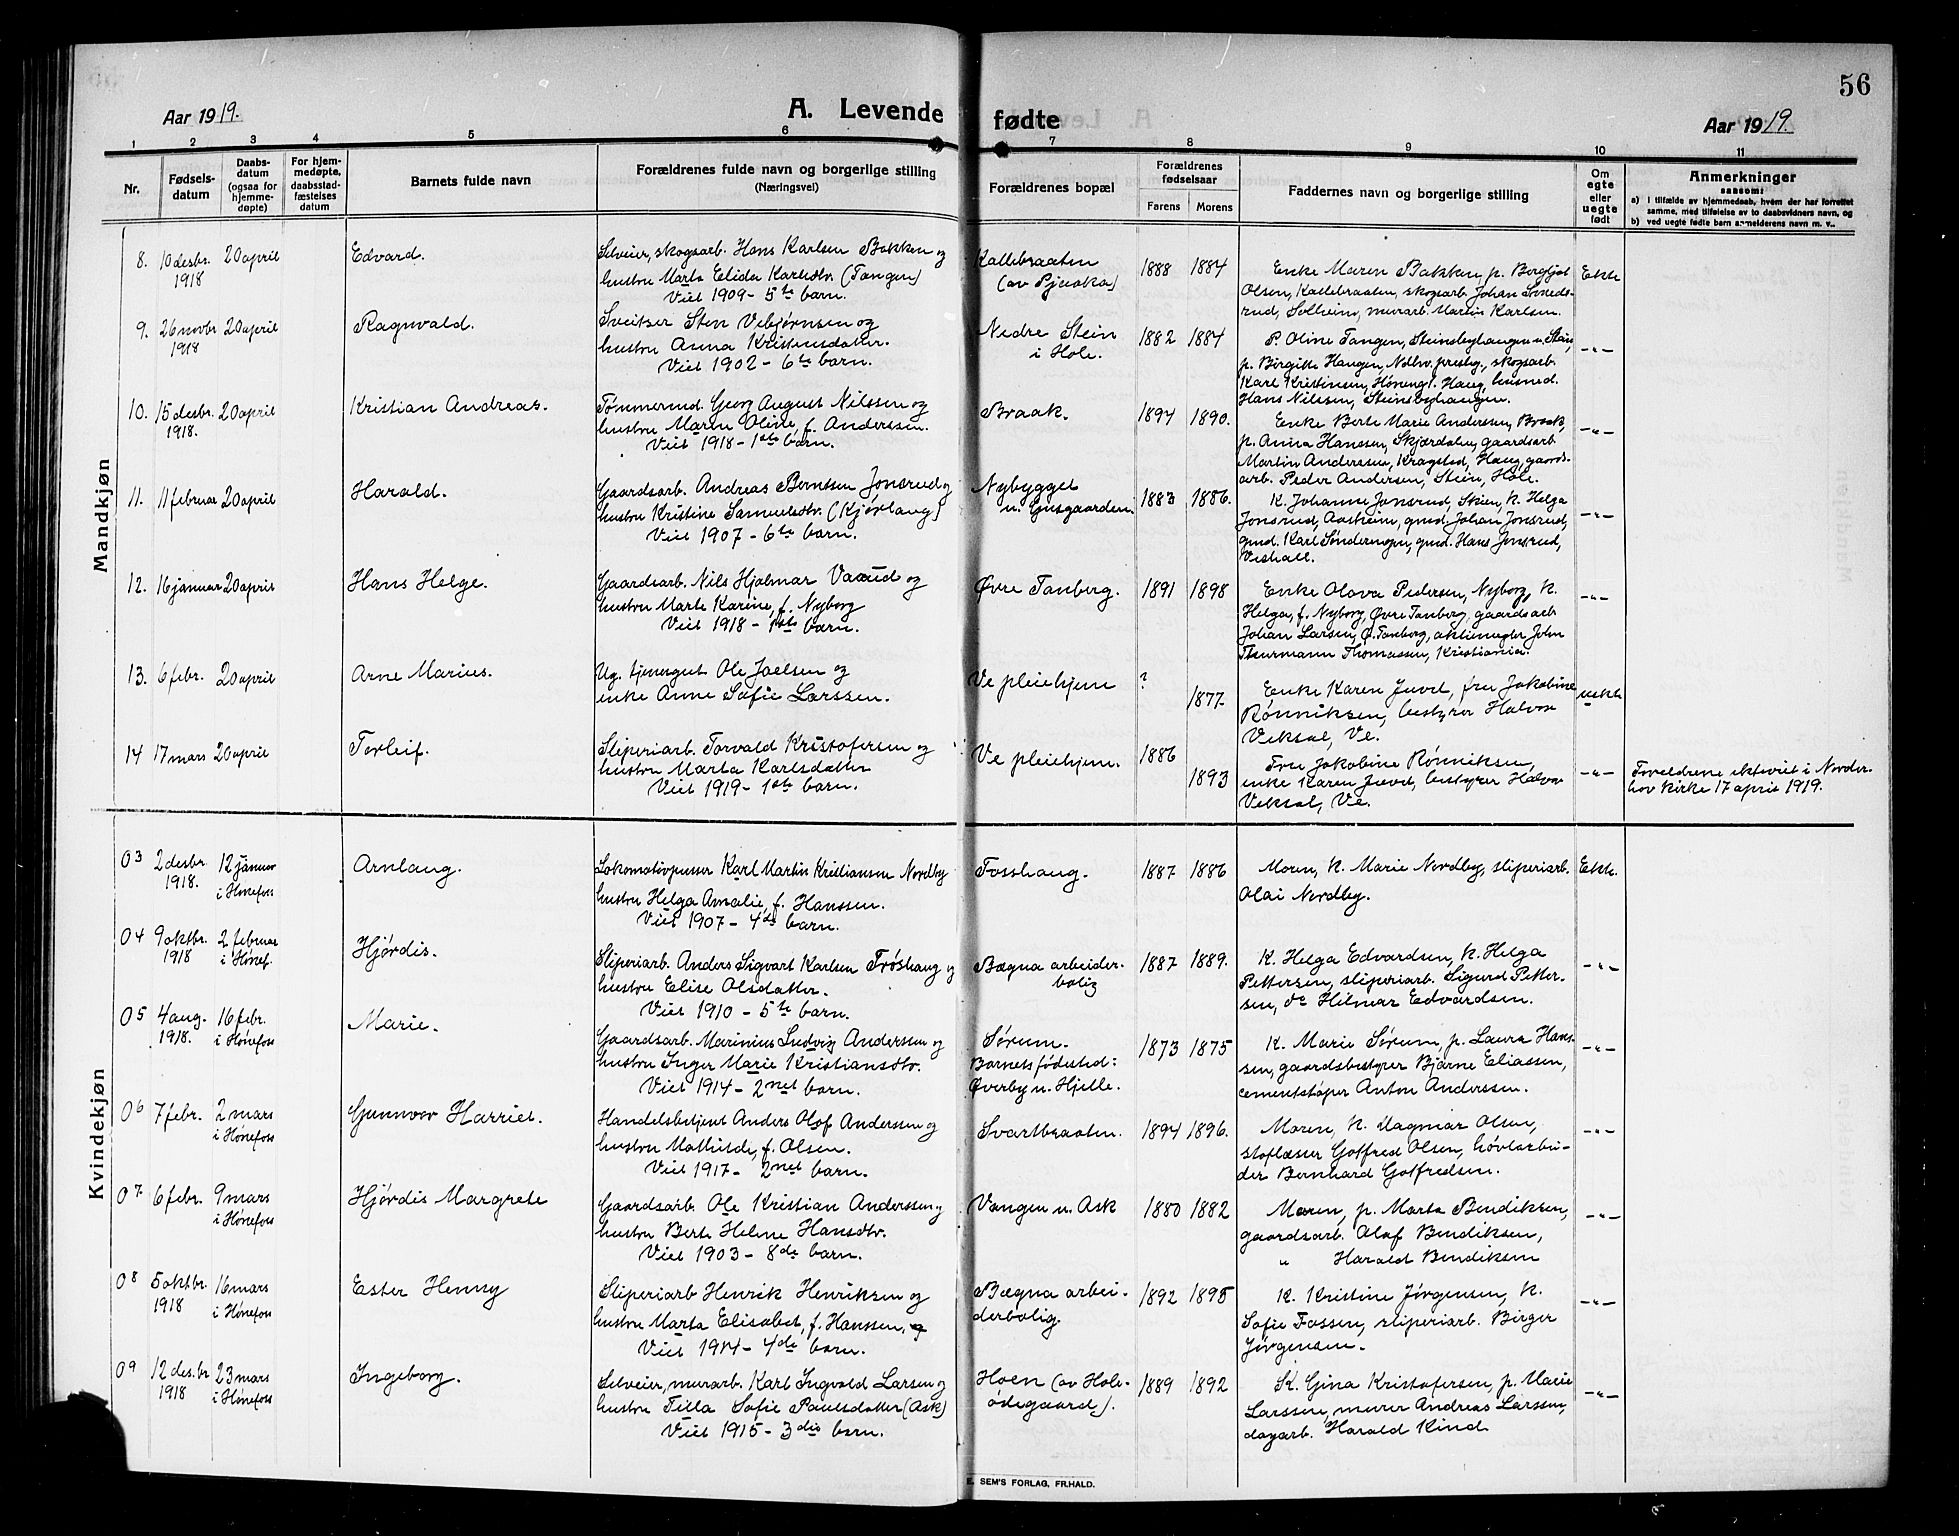 56
Aar 1919.
A. Levende
fødte
Aar 1919.
1 2 3 4 5 6 7 8 9 10 11
Nr.
Fødsels-
datum
Daabs-
datum
(ogsaa for
hjemme-
døpte)
For hjem-
medøpte,
daabsstad-
fæstelses
datum
Barnets fulde navn
Forældrenes fulde navn og borgerlige stilling
(Næringsvei)
Forældrenes bopæl
Forældrenes
fødselsaar
Farens Morens
Faddernes navn og borgerlige stilling
Om
egte
eller
uegte
født
Anmerkninger
saasom:
a) i tilfælde av hjemmedaab, hvem der har forrettet
samme, med tilføielse av to daabsvidners navn, og
b) ved uegte fødte barn anmelderens navn m. v..
Mandkjøn
8. 10 desbr. 1918 20 april
Edvard.
Selveier, skogsarb. Hans Karlsen Bakken og
hustru Marta Elida Karlsdtr. (Tangen)
Viet 1909 - 5te barn.
Kallebraaten
1888 1884
Enke Maren Bakken, p. Bergljot
Olsen, Kallebraaten, skogsarb. Johan
Solheim, murarb. Martin Karlsen.
Ekte
9. 26 novbr 1918 20 april
Ragnvald.
Sveitser Sten Vebjørnsen og
hustru Anna Kristensdatter.
Viet 1902 - 6te barn.
Nedre Stein
i Hole.
1882 1884
P. Oline Tangen, Steinsbyhaugen u. Stein,
p. Birgitte Haugen, Ndhv. presteg., skogsarb.
Karl Kristinsen, Haug, husmd.
Hans Nilssen, Steinsbyhaugen.
-"-
10. 15 desbr. 1918. 20 april
Kristian Andreas.
Tømmermd. Georg August Nilssen og
hustru Maren Oline, f. Anderssen.
Viet 1918 - 1ste barn.
Braak.
1894 1890.
Enke Berte Marie Anderssen, Braak,
p. Anna Hanssen, Skjærdalen, gaardsarb
Martin Anderssen, Kragstad, Haug, gaards-
arb. Peder Andersen, Stein, Hole.
-"-
11. 11 februar 20 april
Harald.
Gaardsarb. Andreas Berntsen Jonsrud og
hustru Kristine Samuelsdtr. (Kjørlaug)
Viet 1907 - 6te barn.
Nybygget
u. Gusgaarden.
1883 1886.
K. Johanne Jonsrud, Skien, k. Helga
Jonsrud, Aasheim, gmd. Johan Jonsrud,
gmd. Karl Søndermoen, gmd. Hans Jonsrud,
-"-
12. 16 januar 20 april
Hans Helge.
Gaardsarb. Nils Hjalmar Vaarud og
hustru Marte Karine, f. Nyborg
Viet 1918 - 1ste barn.
Øvre Tanberg.
1891 1898
Enke Olava Pedersen, Nyborg, k.
Helga, f. Nyborg, Øvre Tanberg, gaardsarb
Johan Larsen, Ø. Tanberg, aktiemegler John
Thurmann Thomassen, Kristiania.
-"-
13. 6 febr. 20 april
Arne Marius.
Ug. tjenergut Ole Joelsen og
enke Anne Sofie Larssen.
Ve pleiehjem
? 1877
Enke Karen Juvet, fru Jakobine
Rønniksen, bestyrer Halvor
Veksal, Ve.
uekte
14 17 mars 20 april
Torleif.
Sliperiarb. Torvald Kristofersen og
hustru Marta Karlsdatter
Viet 1919 - 1ste barn.
Ve pleiehjem.
1886 1893
Fru Jakobine Rønniksen,
enke Karen Juvet, bestyrer Halvor
Veksal, Ve.
-"-
Foreldrene ekteviet i Norder-
hov kirke 17 april 1919.
Kvindekjøn
03 2 desbr. 1918. 12 januar i Hønefoss
Arnlaug.
Lokomotivpusser Karl Martin Kristiansen Nordby
hustru Helga Amalie, f. Hanssen.
Viet 1907 - 4de barn.
Fosshaug.
1887 1886
Moren, k. Marie Nordby, sliperiarb.
Olai Nordby.
Ekte.
04 9 oktbr. 1918 2 februar i Hønef.
Hjørdis.
Sliperiarb. Anders Sigvart Karlsen Frøshaug og
hustru Elise Olsdatter.
Viet 1910 - 5te barn.
Bægna arbeider-
bolig
1887 1889.
K. Helga Edvardsen, k. Helga
Pettersen, sliperiarb. Sigurd Petter-
sen, do Hilmar Edvardsen.
-"-
05 4 aug. 1918. 16 febr. i Hønefoss
Marie.
Gaardsarb. Marinius Ludvig Andersen og
hustru Inger Marie Kristiansdtr.
Viet 1914 - 2net barn.
Sørum.
Barnets fødested:
Øverby u. Hjelle.
1873 1875
K. Marie Sørum, p. Laura Hans-
sen, gaardsbestyrer Bjarne Eliassen,
cementstøper Anton Anderssen.
-"-
06 7 febr. 2 mars i Hønefoss
Gunnvor Harriet.
Handelsbetjent Anders Olaf Anderssen og
hustru Mathilde, f. Olsen.
Viet 1917 - 2net barn.
Svartbraaten.
1894 1896.
Moren, k. Dagmar Olsen,
stoflæsser Gotfred Olsen, høvlarbei-
der Bernhard Gotfredsen.
-"-
07 6 febr. 9 mars i Hønefoss
Hjørdis Margrete
Gaardsarb. Ole Kristian Anderssen og
hustru Berte Helene Hansdtr.
Viet 1903 - 8de barn.
Vangen u. Ask
1880 1882
Moren, p. Marta Bendiksen,
gaardsarb. Olaf Bendiksen,
" Harald Bendiksen
-"-
08 5 oktbr. 1918 16 mars i Hønefoss
Ester Henny
Sliperiarb Henrik Henriksen og
hustru Marta Elisabet, f. Hanssen.
Viet 1914 - 4de barn.
Bægna arbei-
derbolig.
1892 1895
K. Kristine Jørgensen, k.
Sofie Fossen, sliperiarb. Birger
Jørgensen.
-"-
09 12 desbr 1918 23 mars i Hønefoss
Ingeborg.
Selveier, murarb. Karl Ingvald Larsen og
hustru Tilla Sofie Paulsdatter (Ask)
Viet 1915 - 3die barn.
Hoen (av Hole-
ødegaard).
1889 1892
K. Gina Kristofersen, p. Marie
Larssen, murer Andreas Larssen,
dagarb. Harald Kind
-"-
E. SEM'S FORLAG, FR.HALD.